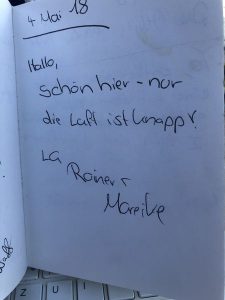 4 Mai 18
Hallo,
schön hier - nur
die Luft ist knapp!
LG
Rainer +
Mareike
Z U I